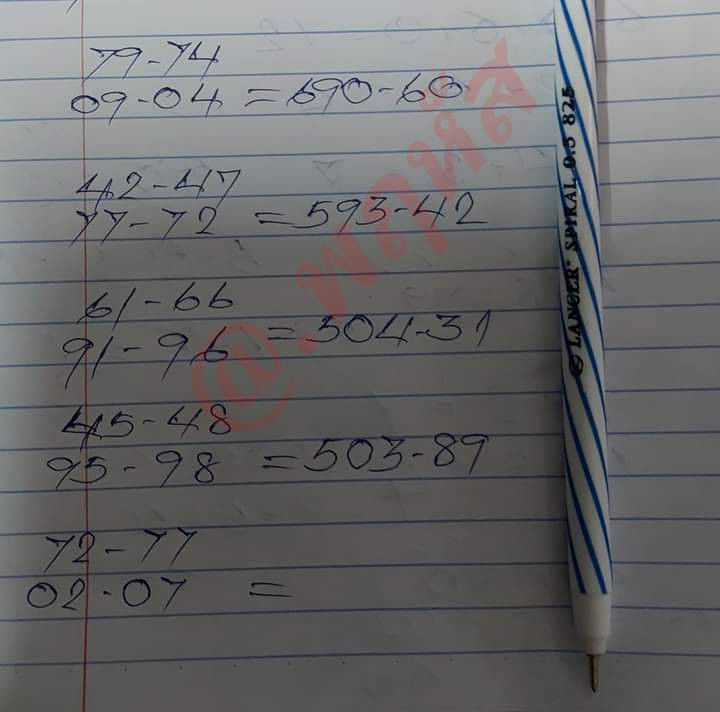 79-74
09-04 = 690-60
42-47
77-72 = 593-42
61-66
91-96 = 304-31
45-48
95-98 = 503-89
72-77
02-07 =
@.พฤหัส
© LANCER* SPIRAL 0.5 825